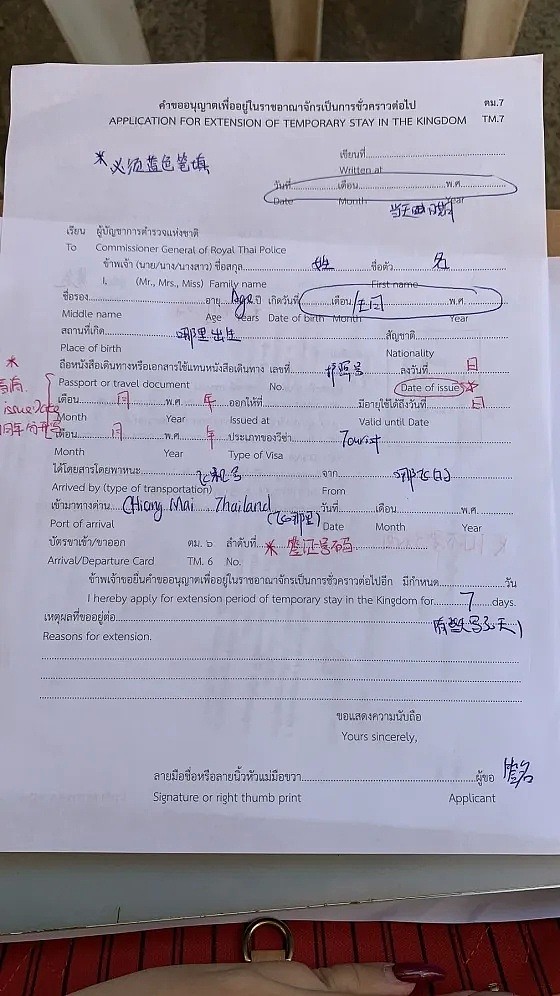 คำขออนุญาตเพื่ออยู่ในราชอาณาจักรเป็นการชั่วคราวต่อไป ตม.7
APPLICATION FOR EXTENSION OF TEMPORARY STAY IN THE KINGDOM TM.7
* 必须蓝色笔填
เขียนที่
Written at
วันที่ เดือน พ.ศ.
Date Month Year
当天的日期
เรียน ผู้บัญชาการตำรวจแห่งชาติ
To Commissioner General of Royal Thai Police
ข้าพเจ้า (นาย/นาง/นางสาว) ชื่อสกุล 姓 ชื่อตัว 名
I, (Mr., Mrs., Miss) Family name First name
ชื่อรอง อายุ Age ปี เกิดวันที่ เดือน พ.ศ.
Middle name Age Years Date of birth Month Year
สถานที่เกิด 哪里出生 สัญชาติ
Place of birth Nationality
ถือหนังสือเดินทางหรือเอกสารใช้แทนหนังสือเดินทาง เลขที่ 护照号 ลงวันที่ 日
Passport or travel document No. Date of issue *
issue Date
เดือน 月 พ.ศ. 年 ออกให้ที่ มีอายุใช้ได้ถึงวันที่ 日
Month Year Issued at Valid until Date
เดือน 月 พ.ศ. 年 ประเภทของวีซ่า Tourist
Month Year Type of Visa
ได้โดยสารโดยพาหนะ จาก
Arrived by (type of transportation) From
เข้ามาทางด่าน Chiang Mai Thailand วันที่ เดือน พ.ศ.
Port of arrival (飞哪里) Date Month Year
บัตรขาเข้า/ขาออก ตม. ๖ ลำดับที่ * 签证号码
Arrival/Departure Card TM. 6 No.
ข้าพเจ้าขอยื่นคำขออนุญาตเพื่ออยู่ในราชอาณาจักรเป็นการชั่วคราวต่อไปอีก มีกำหนด วัน
I hereby apply for extension period of temporary stay in the Kingdom for 7 days.
เหตุผลที่ขออยู่ต่อ
Reasons for extension.
ขอแสดงความนับถือ
Yours sincerely,
ลายมือชื่อหรือลายนิ้วหัวแม่มือขวา ผู้ขอ 签名
Signature or right thumb print Applicant